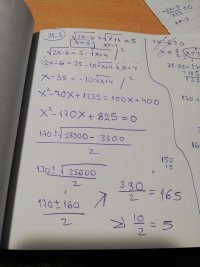 √2x-6 + √x+4 = 5
√2x-6 = 5 - √x+4 /²
2x-6 = 25-10√x+4 + x+4
x-35 = -10√x+4 /²
x²-70x+1225 = 100x+400
x²-170x+825=0
170±√28900-3300
2
170±√25600
2
170±160
2
330
2
= 165
10
2
= 5